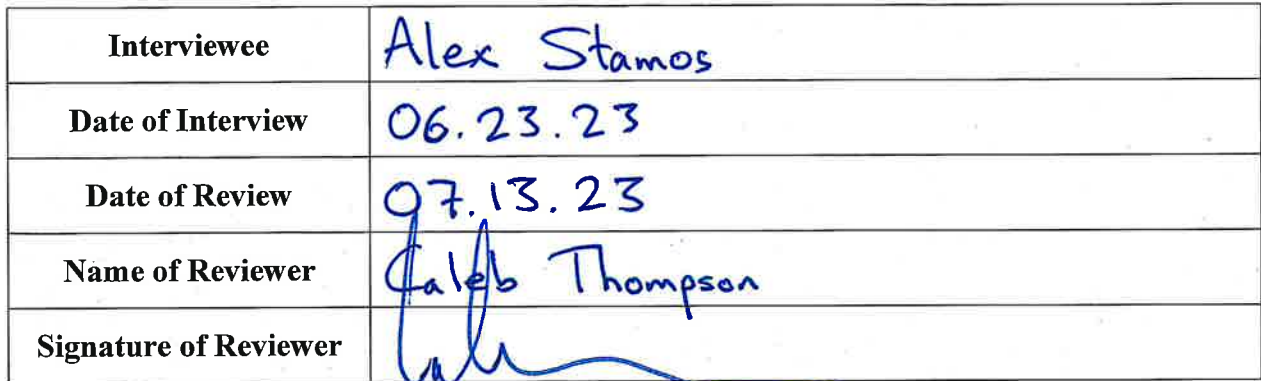 Interviewee Alex Stamos
Date of Interview 06.23.23
Date of Review 07.13.23
Name of Reviewer Caleb Thompson
Signature of Reviewer